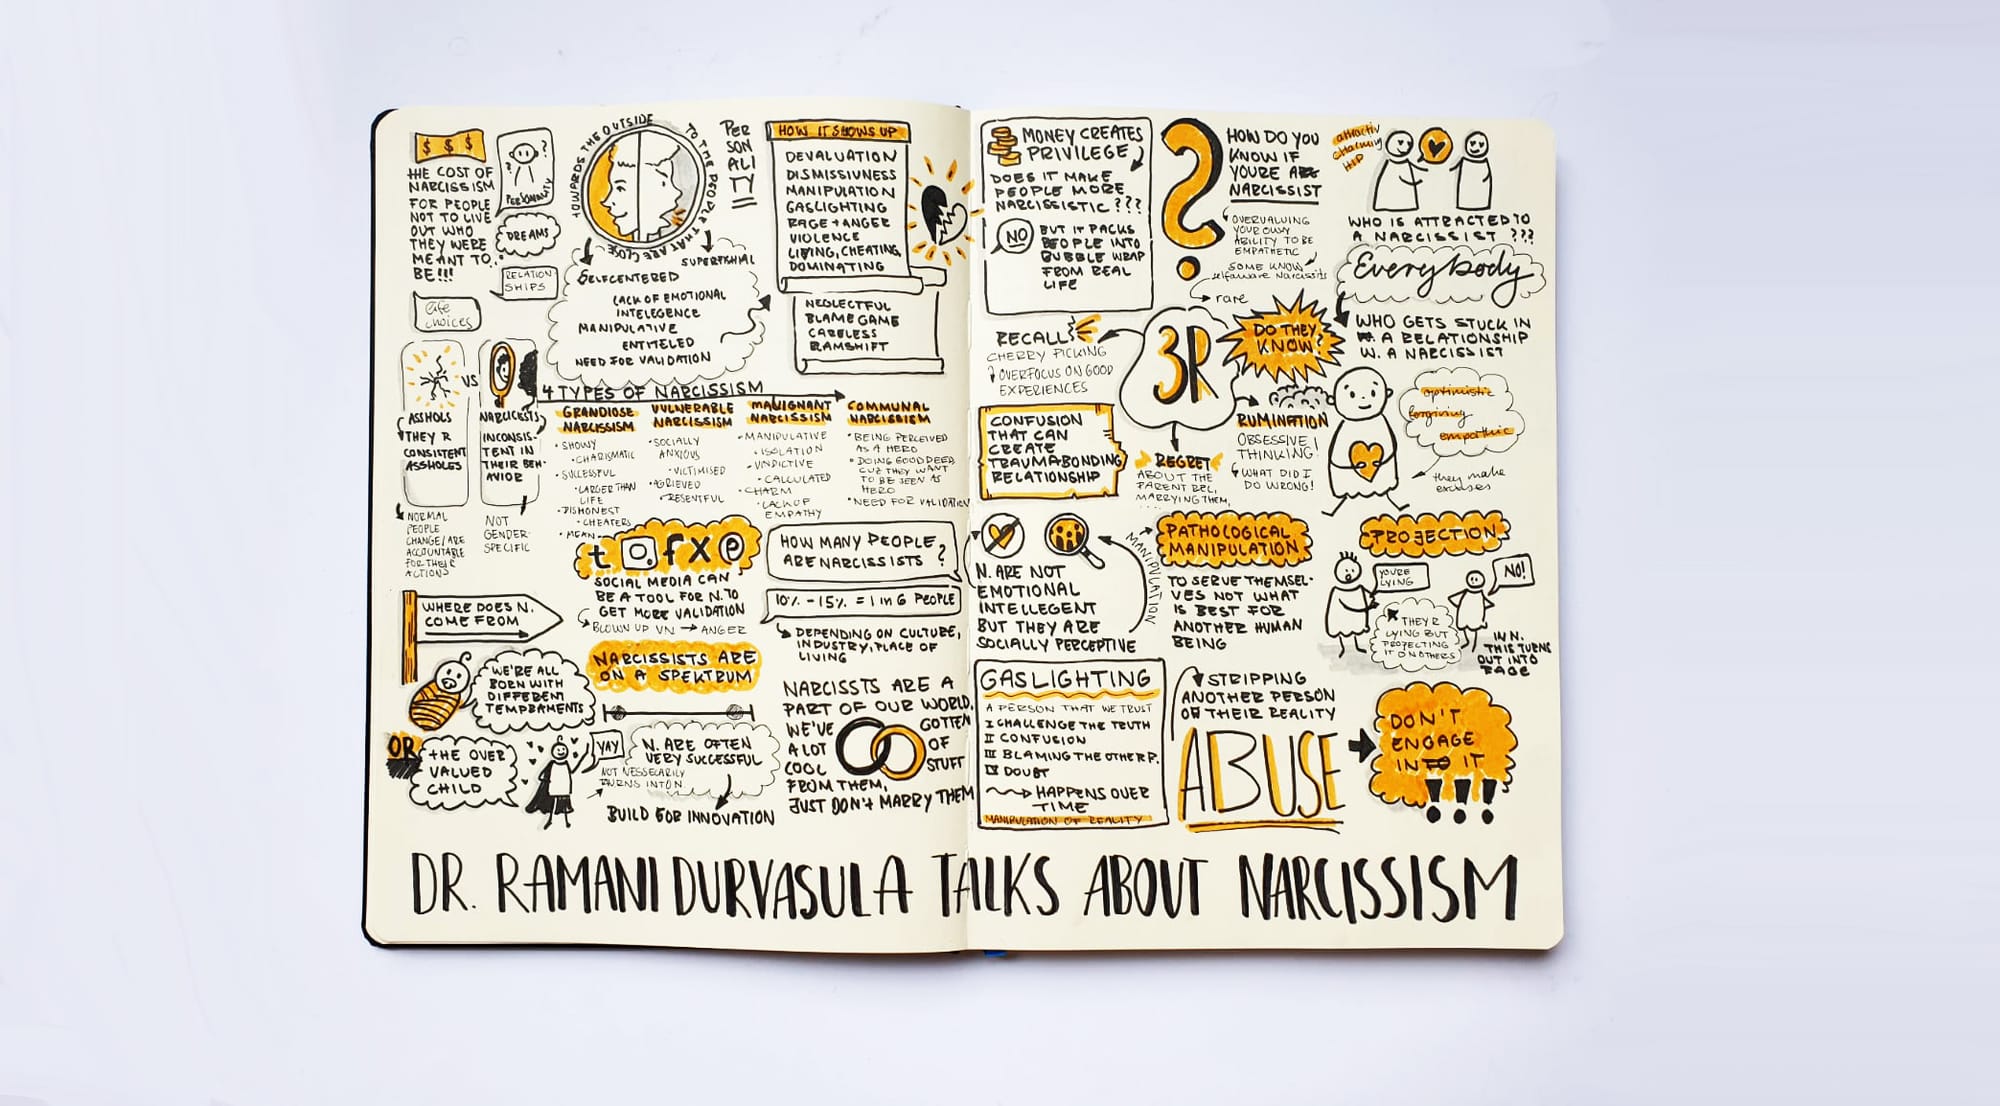 $ $ $
THE COST OF
NARCISSISM
FOR PEOPLE
NOT TO LIVE
OUT WHO
THEY WERE
MEANT TO
BE!!!
PERSONALITY
DREAMS
RELATION
SHIPS
life
choices
TOWARDS THE OUTSIDE
TO THE PEOPLE THAT ARE CLOSE
PER
SON
ALI
TY
SUPERFISHIAL
SELFCENTERED
LACK OF EMOTIONAL
INTELEGENCE
MANIPULATIVE
ENTITELED
NEED FOR VALIDATION
HOW IT SHOWS UP
DEVALUATION
DISMISSIVNESS
MANIPULATION
GASLIGHTING
RAGE + ANGER
VIOLENCE
LIVING, CHEATING,
DOMINATING
NEGLECTFUL
BLAME GAME
CARELESS
RAMSHIFT
VS
ASSHOLS
THEY R
CONSISTENT
ASSHOLES
NORMAL
PEOPLE
CHANGE/ARE
ACCOUNTABLE
FOR THEIR
ACTIONS
NARCICESTS
INCONSIS-
TENT IN
THEIR BEH-
AVIOR
NOT
GENDER-
SPECIFIC
4 TYPES OF NARCISSISM
GRANDIOSE
NARCISSISM
• SHOWY
• CHARISMATIC
• SUCCESSFUL
• LARGER THAN
LIFE
• DISHONEST
• CHEATERS
• MEAN
VULNERABLE
NARCISSISM
• SOCIALLY
ANXIOUS
• VICTIMISED
• AGRIEVED
• RESENTFUL
MALIGNANT
NARCISSISM
• MANIPULATIVE
• ISOLATION
• VINDICTIVE
• CALCULATED
• CHARM
• LACK OF
EMPATHY
COMMUNAL
NARCISSISM
• BEING PERCEIVED
AS A HERO
• DOING GOOD DEED
CUZ THEY WANT
TO BE SEEN AS
HERO
• NEED FOR VALIDATION
t f X P
SOCIAL MEDIA CAN
BE A TOOL FOR N. TO
GET MORE VALIDATION
BLOWN UP VN → ANGER
HOW MANY PEOPLE
ARE NARCISSISTS ?
10% - 15% = 1 IN 6 PEOPLE
DEPENDING ON CULTURE,
INDUSTRY, PLACE OF
LIVING
WHERE DOES N.
COME FROM
WE'RE ALL
BORN WITH
DIFFERENT
TEMPBAMENTS
OR
THE OVER
VALUED
CHILD
YAY
NARCISSISTS ARE
ON A SPEKTRUM
N. ARE OFTEN
VERY SUCCESSFUL
NOT NESSECARILY
TURNS INTO N.
BUILD FOR INNOVATION
NARCISSTS ARE A
PART OF OUR WORLD.
WE'VE GOTTEN
A LOT OF
COOL STUFF
FROM THEM,
JUST DON'T MARRY THEM
MONEY CREATES
PRIVILEGE
DOES IT MAKE
PEOPLE MORE
NARCISSISTIC???
NO
BUT IT PACKS
PEOPLE INTO
BUBBLE WRAP
FROM REAL
LIFE
?
HOW DO YOU
KNOW IF
YOURE A
NARCISSIST
OVERVALUING
YOUR OWN
ABILITY TO BE
EMPATHETIC
SOME KNOW
selfaware Narcissists
rare
attractiv
charming
HIP
WHO IS ATTRACTED TO
A NARCISSIST ???
Everybody
WHO GETS STUCK IN
A RELATIONSHIP
W. A NARCISSIST
optimistic
forgiving
empathic
they make
excuses
3R
DO THEY
KNOW?
RECALL
CHERRY PICKING
OVERFOCUS ON GOOD
EXPERIENCES
REGRET
ABOUT THE
PARENT REL,
MARRYING THEM,
RUMINATION
OBSESSIVE
THINKING!
WHAT DID I
DO WRONG!
CONFUSION
THAT CAN
CREATE
TRAUMABONDING
RELATIONSHIP
N. ARE NOT
EMOTIONAL
INTELLEGENT
BUT THEY ARE
SOCIALLY PERCEPTIVE
MANIPULATION
PATHOLOGICAL
MANIPULATION
TO SERVE THEMSEL-
VES NOT WHAT
IS BEST FOR
ANOTHER HUMAN
BEING
PROJECTION
YOU'RE
LYING
NO!
THEY R
LYING BUT
PROJECTING
IT ON OTHERS
IN N.
THIS TURNS
OUT INTO
RAGE
GASLIGHTING
A PERSON THAT WE TRUST
I CHALLENGE THE TRUTH
II CONFUSION
III BLAMING THE OTHER P.
IV DOUBT
HAPPENS OVER
TIME
MANIPULATION OF REALITY
STRIPPING
ANOTHER PERSON
OF THEIR REALITY
ABUSE
DON'T
ENGAGE
INTO IT
!!!
DR. RAMANI DURVASULA TALKS ABOUT NARCISSISM